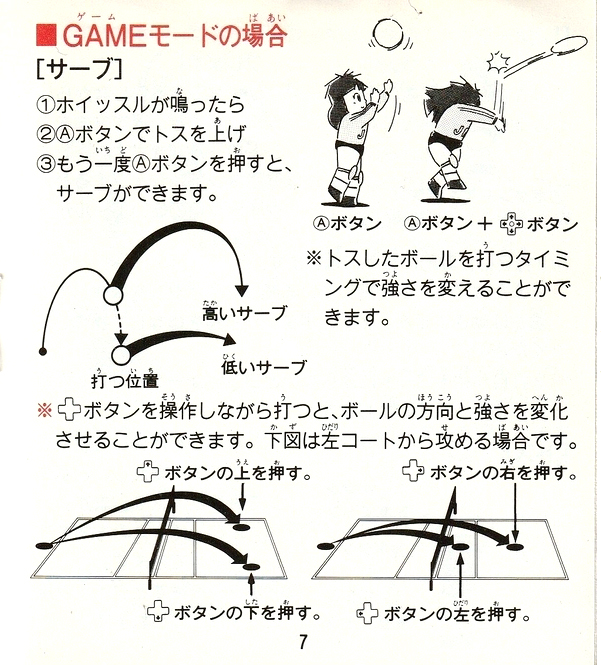 ■GAMEモードの場合
[サーブ]
①ホイッスルが鳴ったら
②Ⓐボタンでトスを上げ
③もう一度Ⓐボタンを押すと、
サーブができます。
Ⓐボタン
Ⓐボタン＋ボタン
※トスしたボールを打つタイミ
ングで強さを変えることがで
きます。
高いサーブ
低いサーブ
打つ位置
※ボタンを操作しながら打つと、ボールの方向と強さを変化
させることができます。下図は左コートから攻める場合です。
ボタンの上を押す。
ボタンの右を押す。
ボタンの下を押す。
ボタンの左を押す。
7